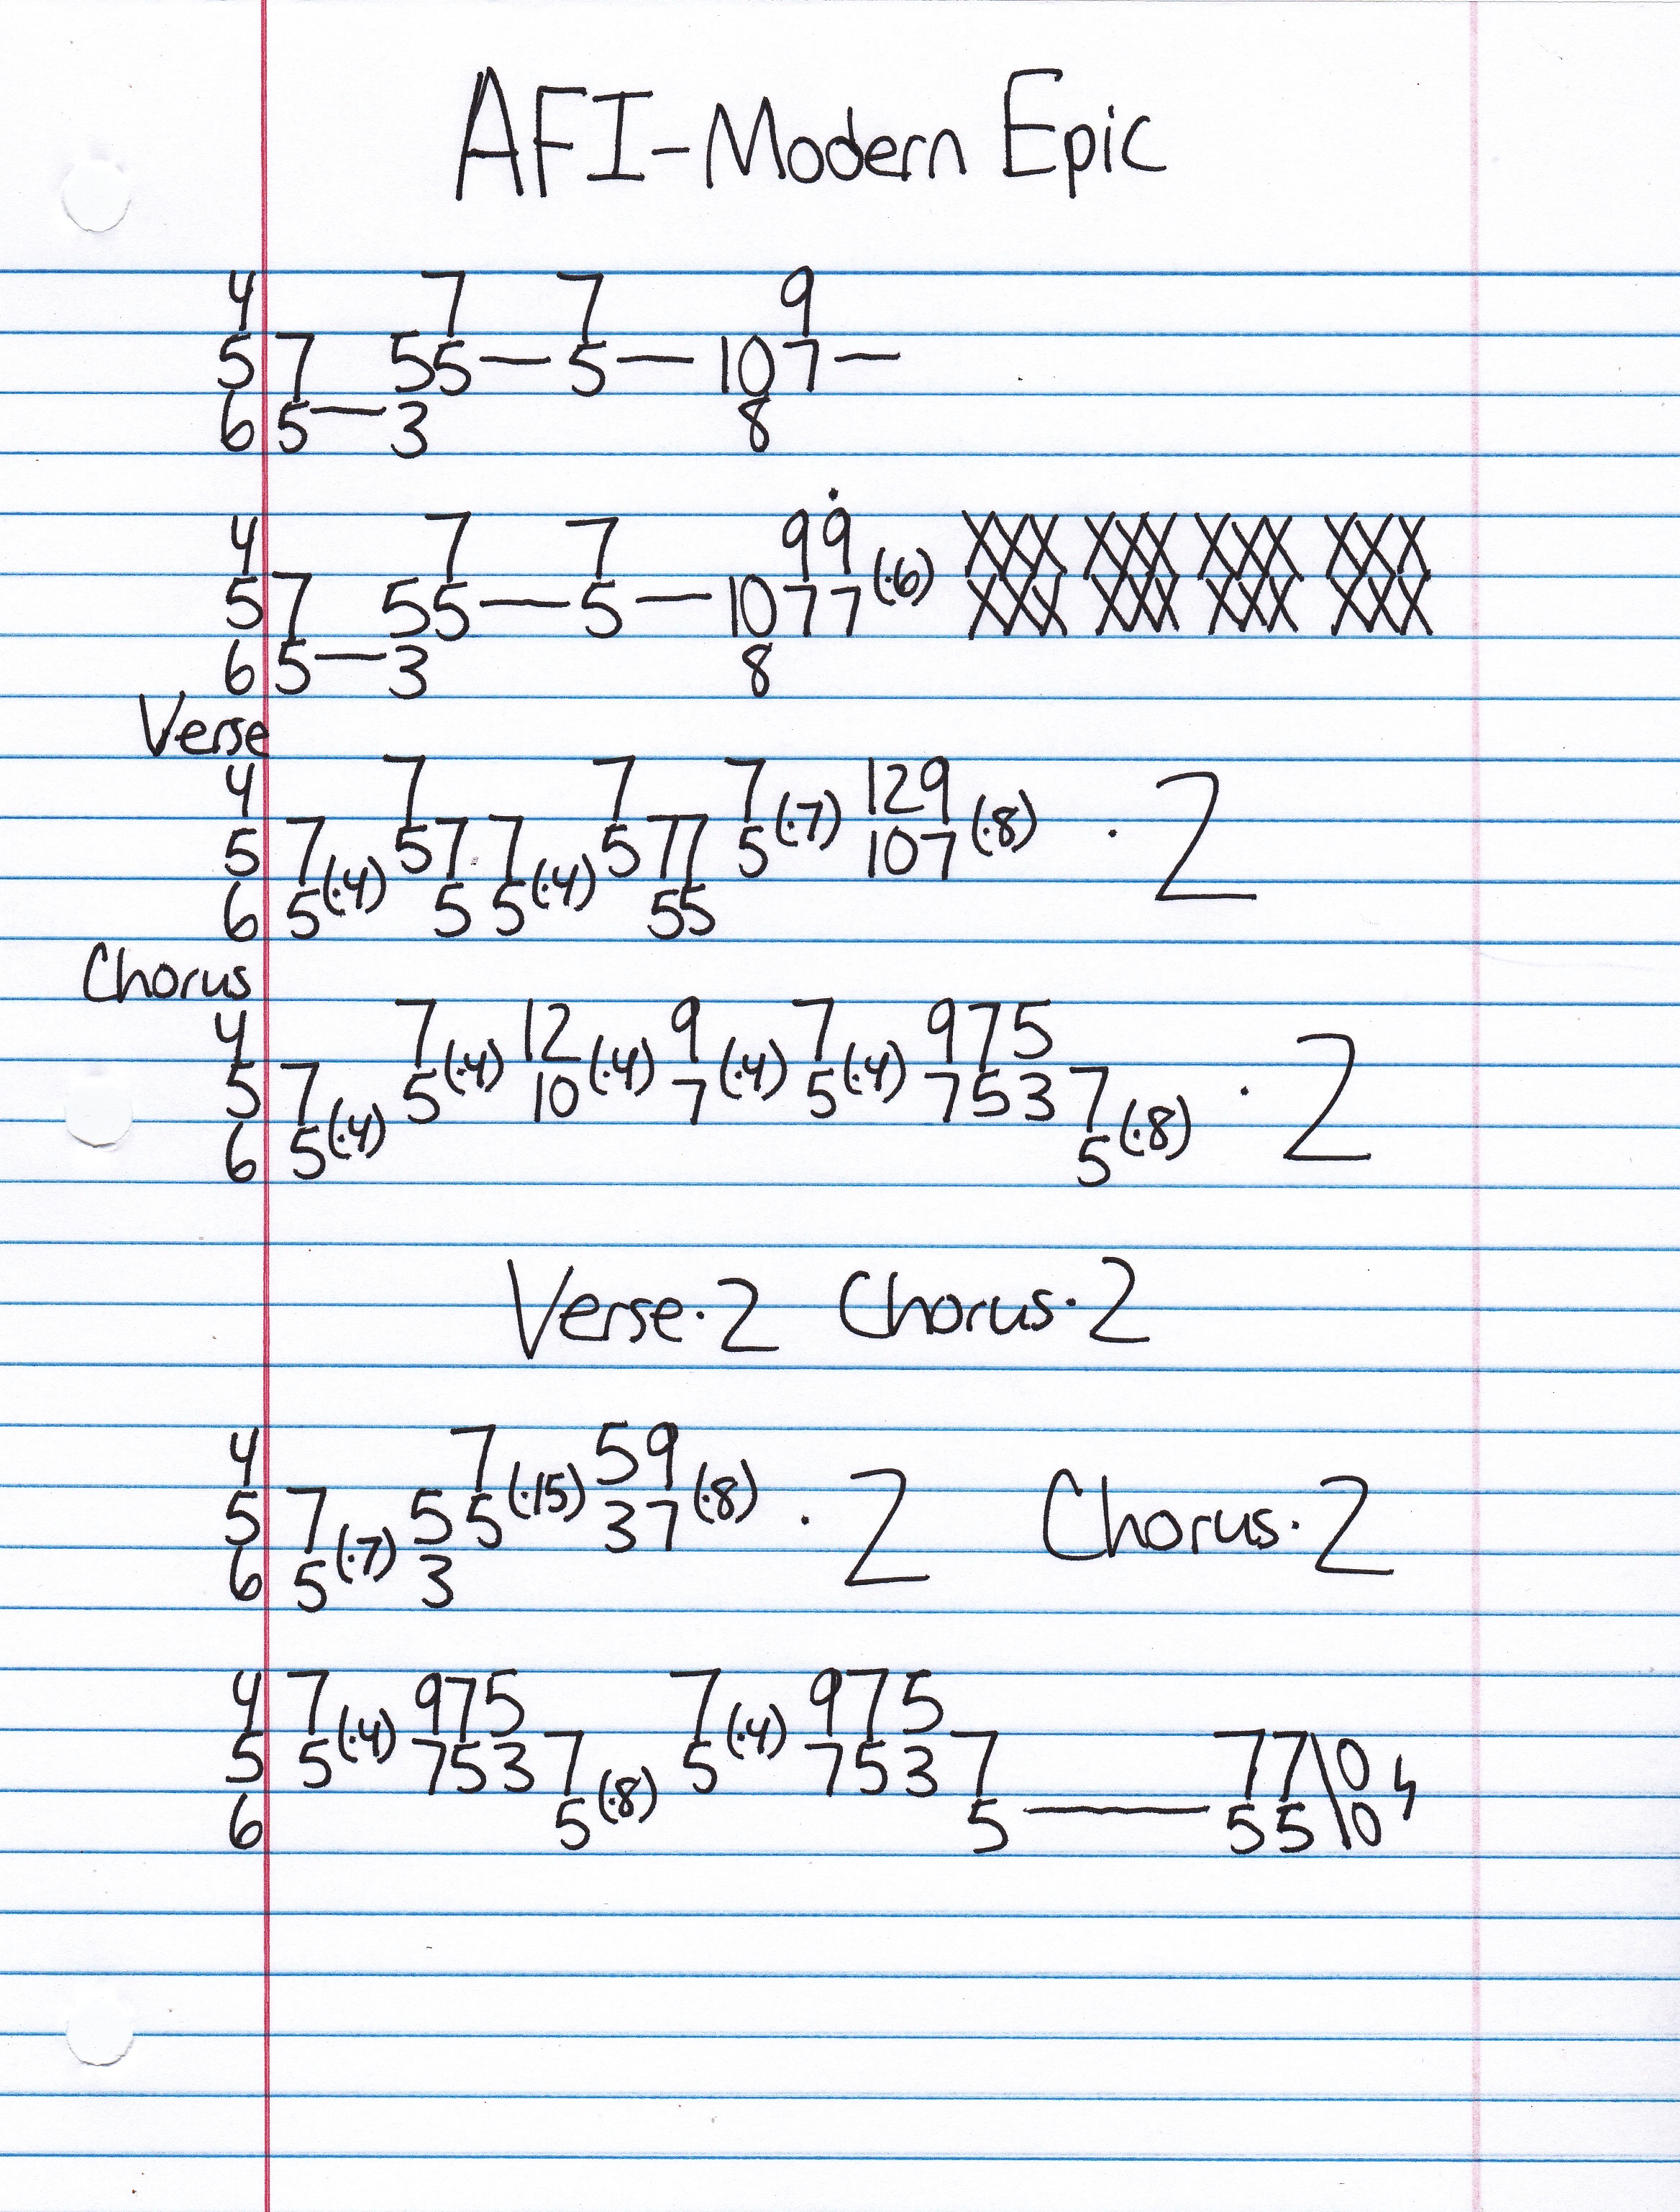 AFI-Modern Epic
4 7 7 9
5 7 55—5—107—
6 5—3 8
4 7 7 99
5 7 55—5—1077(·6) XXX XXX XXX XXX
6 5—3 8 XXX XXX XXX XXX
Verse
4 7 7 7 129
5 7 57 7 577 5(·7) 107(·8) ·2
6 5(·4) 5 5(·4) 55
Chorus
4 7 12 9 7 975
5 7 5(·4) 10(·4) 7(·4) 5(·4) 753 7 ·2
6 5(·4) 5(·8)
Verse·2 Chorus·2
4 7 59
5 7 55(·15) 37(·8) ·2 Chorus·2
6 5(·7) 3
4 7 975 7 975
5 5(·4) 753 7 5(·4) 753 7 77\0
6 5(·8) 5—55\0